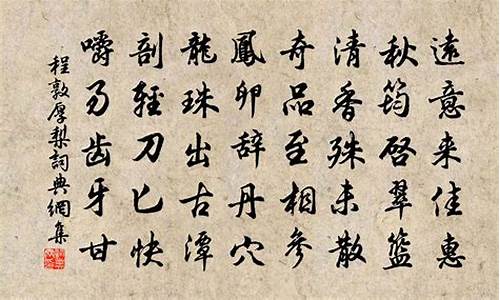 遠意来佳惠
秋筠啓翠籃
清香殊未散
奇品至相參
鳳卵辞丹穴
龍珠出古潭
剖輕刀匕快
嚼易齿牙甘
程敦厚梨詞典網集